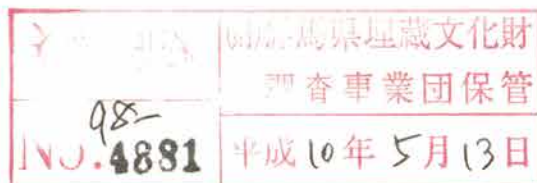 群馬県埋蔵文化財
調査事業団保管
98-
NO.4881
平成10年5月13日